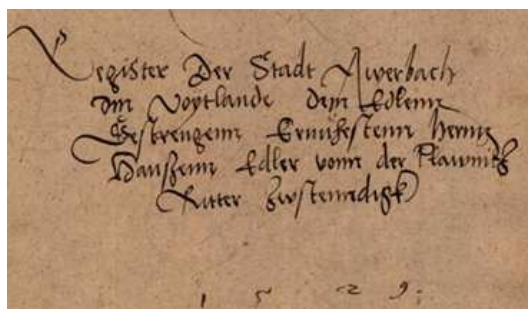 Register Der Stadt Awerbach
Im Voytlande dem Edlenn
Gestrengenn Ernuhestenn herrnn
Hanszenn Edler vonn der Plawnitz
Ritter zustenndigk
1529: